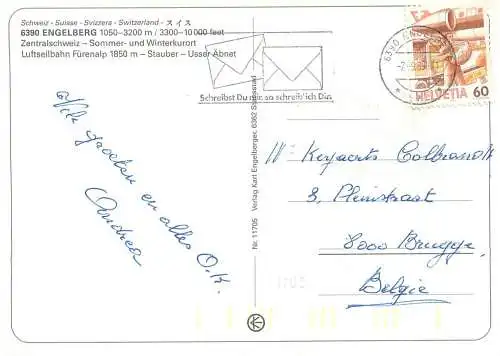 Schweiz - Suisse - Svizzera - Switzerland - スイス
6390 ENGELBERG 1050–3200 m / 3300–10 000 feet
Zentralschweiz – Sommer- und Winterkurort
Luftseilbahn Fürenalp 1850 m – Stauber – Usser Äbnet
Schreibst Du mir, so schreib ich Dir.
6390 ENGELBERG
HELVETIA 60
Vele groeten en alles O.K.
Andrea
Nr. 11705 Verlag Karl Engelberger, 6362 Stansstad
Mr Keyaerts Colbrandt
3, Pleinstraat
8000 Brugge
Belgie